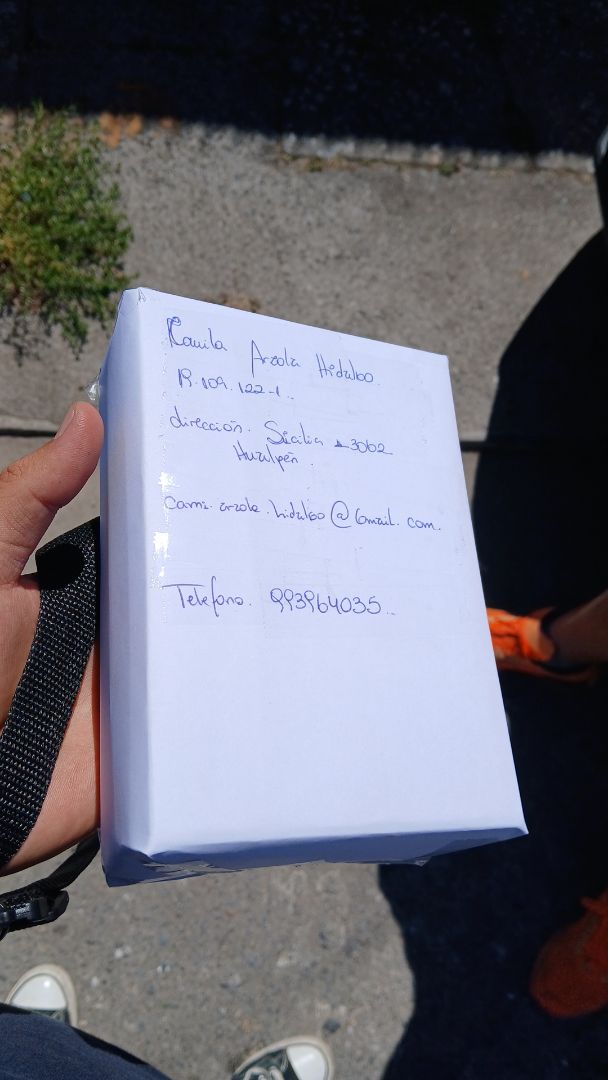 Kamila Arzola Hidalgo.
19.109.122-1.
dirección. Sicilia 3062
Hualpén.
cami.arzola.hidalgo@Gmail.com.
Telefono. 993964035.